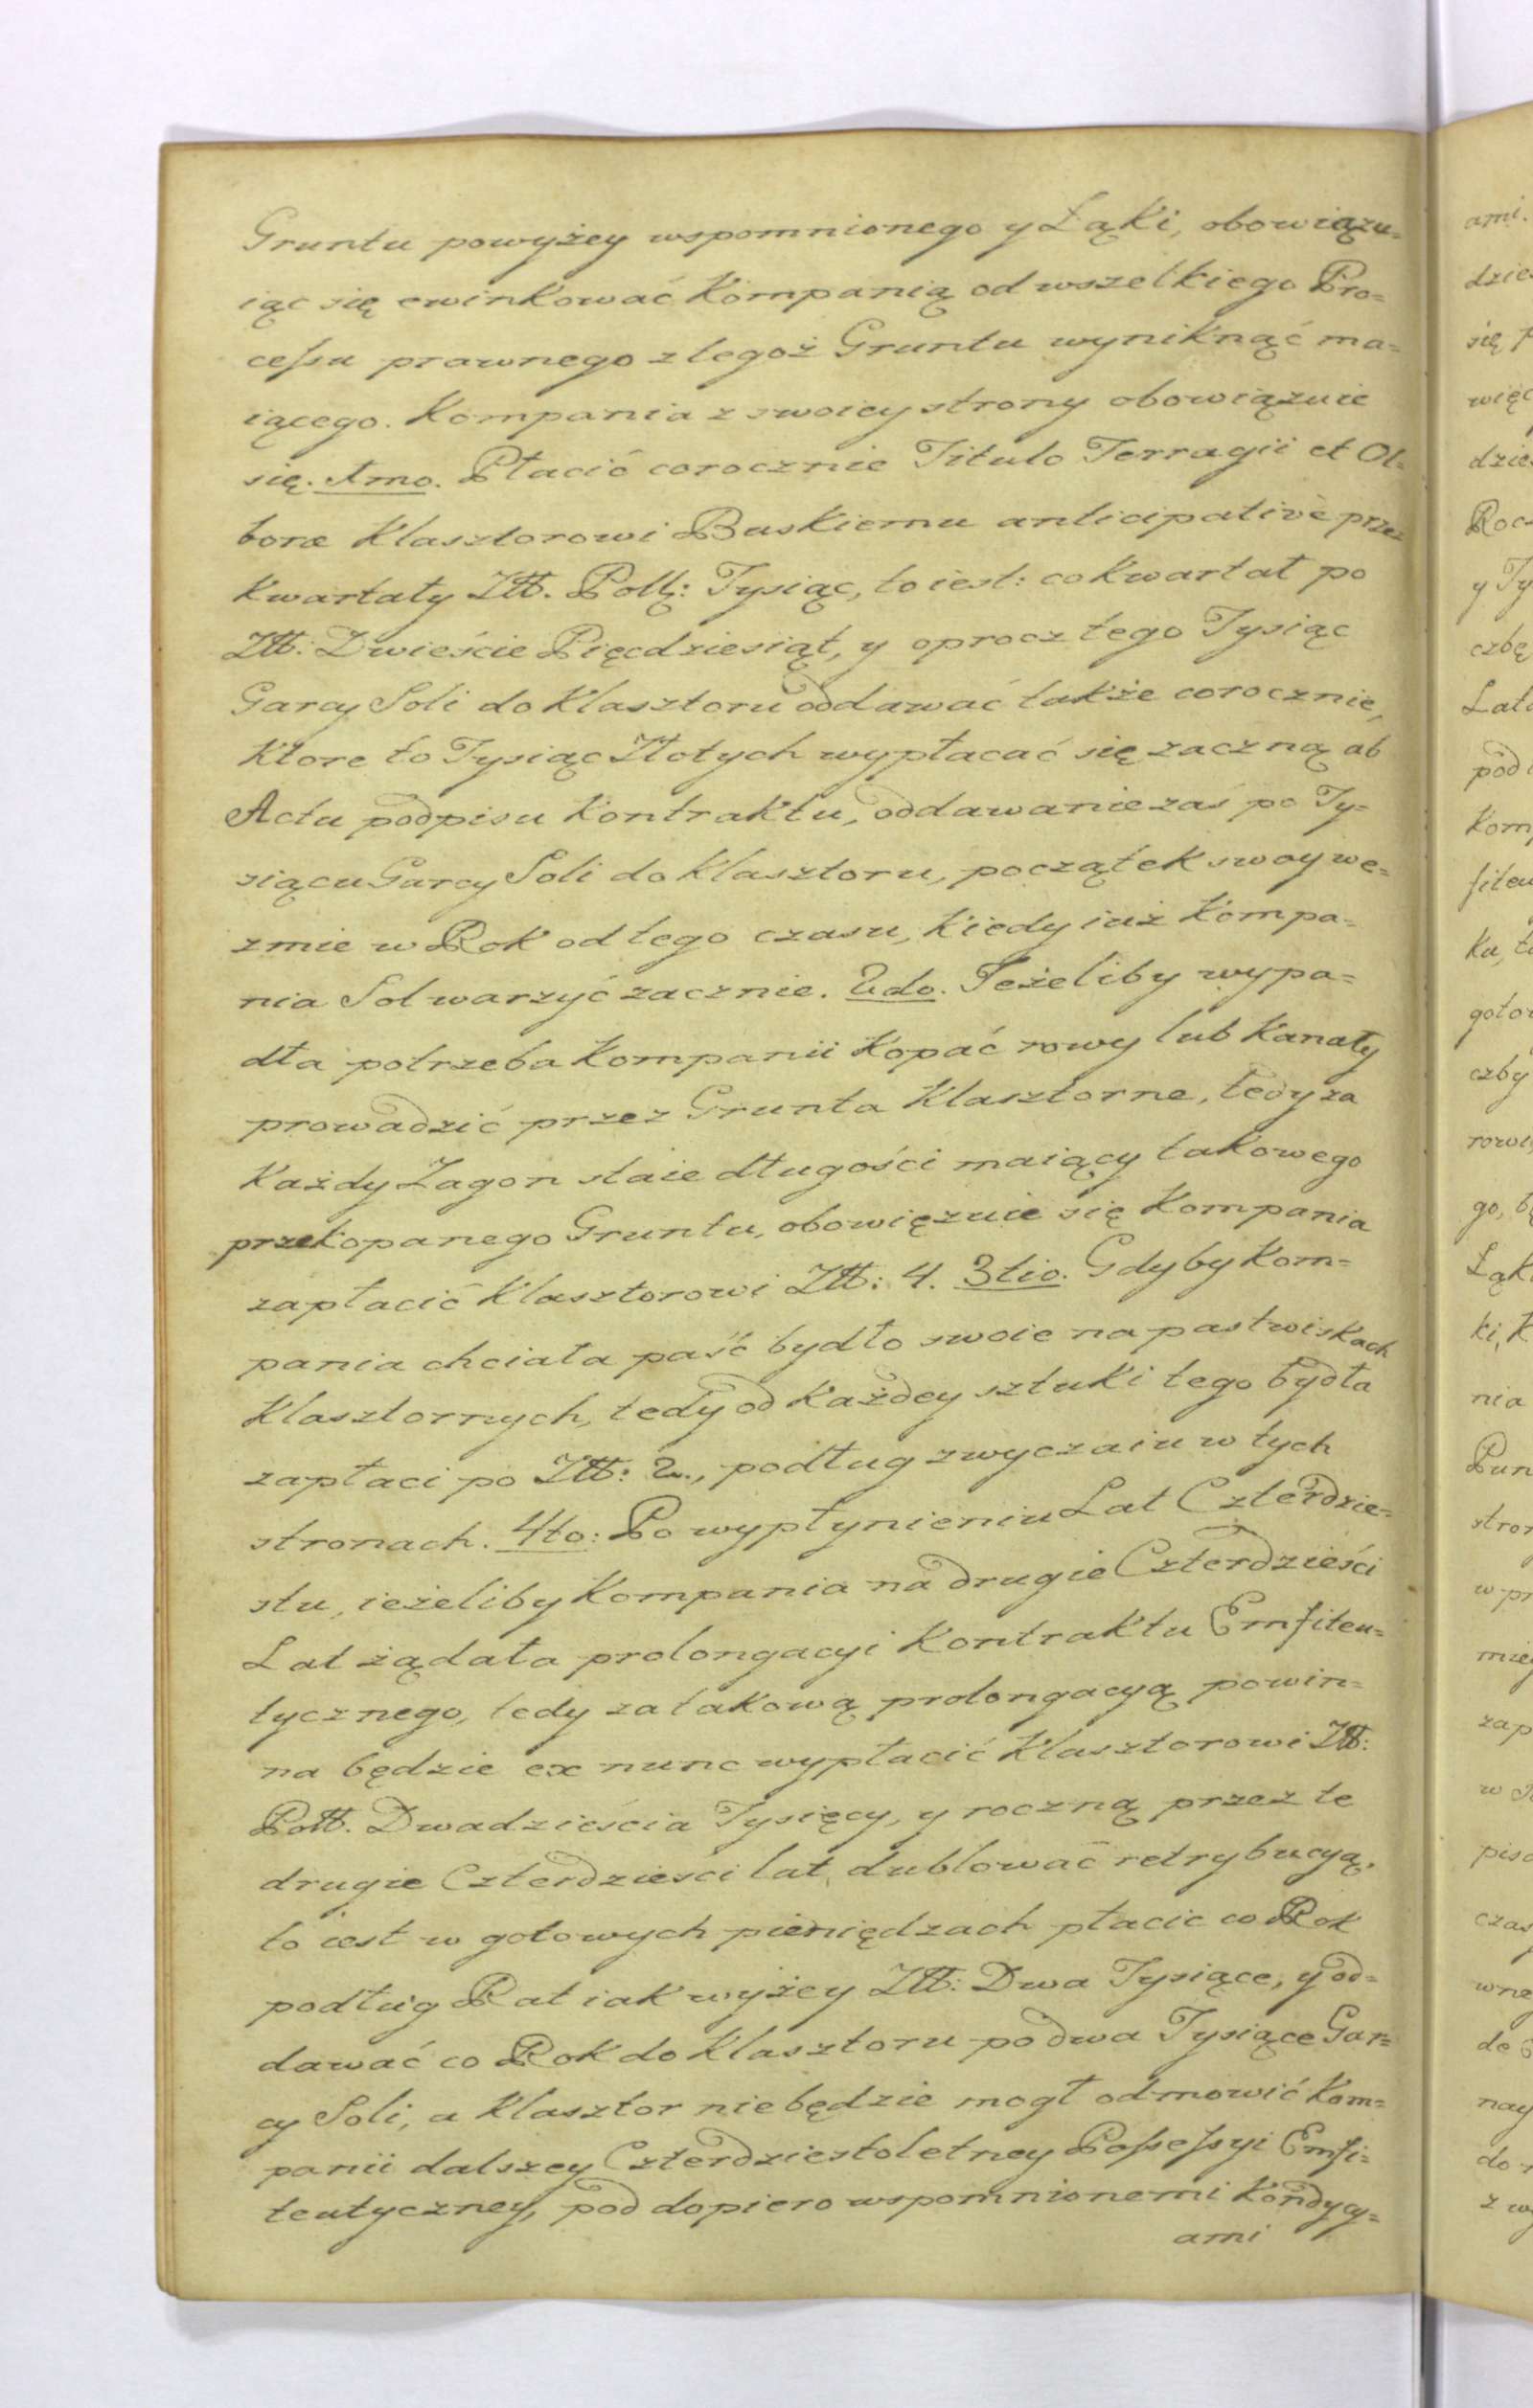 Gruntu powyżey wspomnionego y Łąki, obowiązu=
iąc się ewinkować Kompanią od wszelkiego Pro=
cessu prawnego z tegoż Gruntu wyniknąć ma=
iącego. Kompania z swoiey strony obowiązuie
się. 1mo. Płacić corocznie Titulo Terragii et Ol=
boræ Klasztorowi Buskiemu anticipativè przez
Kwartały Złł. Poll: Tysiąc, to iest: co Kwartał po
Złł: Dwieście Pięcdziesiąt, y oprocz tego Tysiąc
Garcy Soli do Klasztoru oddawać także corocznie,
Ktore to Tysiąc Złotych wypłacać się zaczną ab
Actu podpisu Kontraktu, oddawanie zaś po Ty=
siącu Garcy Soli do Klasztoru, początek swoy we=
zmie w Rok od tego czasu, kiedy iuż Kompa=
nia Sol warzyć zacznie. 2do. Jeżeliby wypa=
dła potrzeba Kompanii Kopać rowy lub Kanały
prowadzić przez Grunta Klasztorne, tedy za
Każdy Zagon staie długości maiący takowego
przekopanego Gruntu, obowięzuie się Kompania
zapłacić Klasztorowi Złł: 4. 3tio. Gdyby Kom=
pania chciała paść bydło swoie na pastwiskach
Klasztornych, tedy od Każdey sztuki tego bydła
zapłaci po Złł: 2., podług zwyczaiu w tych
stronach. 4to: Po wypłynieniu Lat Czterdzie=
stu, ieżeliby Kompania na drugie Czterdzieści
Lat żądała prolongacyi Kontraktu Emfiteu=
tycznego, tedy za takową prolongacyą powin=
na będzie ex nunc wypłacić Klasztorowi Złł:
Poll. Dwadzieścia Tysięcy, y roczną przez te
drugie Czterdzieści lat dublować retrybucyą,
to iest w gotowych pieniędzach płacic co Rok
podług Rat iak wyżey Złł: Dwa Tysiące, y od=
dawać co Rok do Klasztoru po dwa Tysiące Gar=
cy Soli, a Klasztor nie będzie mogł odmowić Kom=
panii dalszey Czterdziestoletney Possessyi Emfi=
teutyczney, pod dopiero wspomnionemi Kondycy=
ami